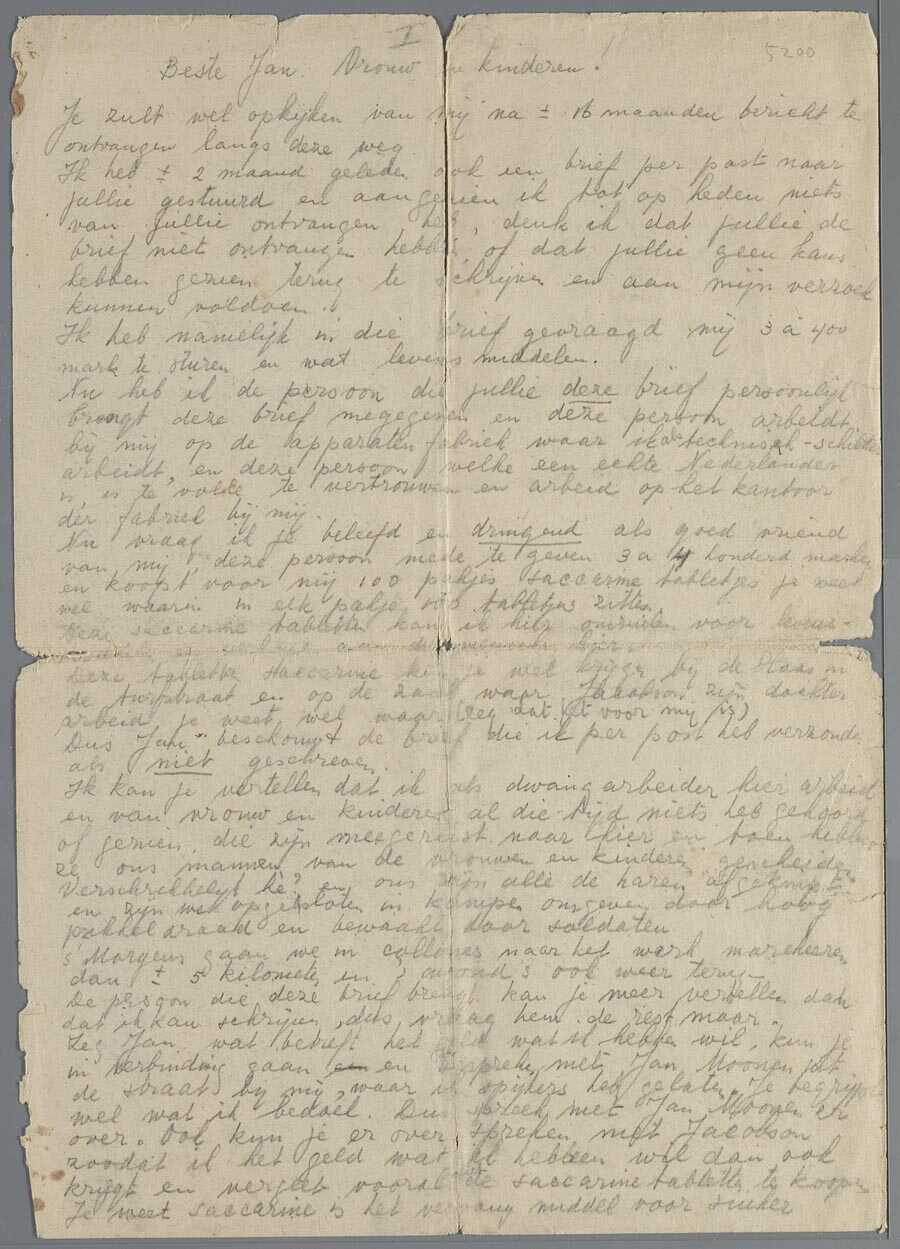 I
5200
Beste Jan. Vrouw en kinderen!
Je zult wel opkijken van mij na ± 16 maanden bericht te
ontvangen langs deze weg
Ik heb ± 2 maand geleden ook een brief per post naar
jullie gestuurd en aangezien ik tot op heden niets
van jullie ontvangen heb, denk ik dat jullie de
brief niet ontvangen hebben of dat jullie geen kans
hebben gezien terug te schrijven en aan mijn verzoek
kunnen voldoen.
Ik heb namelijk in die brief gevraagd mij 3 à 400
mark te sturen en wat levensmiddelen.
Nu heb ik de persoon die jullie deze brief persoonlijk
brengt deze brief megegeven en deze persoon arbeidt
bij mij op de apparatenfabriek waar ik als technisch-schilder
arbeidt, en deze persoon welke een echte Nederlander
is, is te volle te vertrouwen en arbeid op het kantoor
der fabriek bij mij.
Nu vraag ik je beleefd en dringend als goed vriend
van mij deze persoon mede te geven 3 a 4 honderd marken
en koopt voor mij 100 pakjes saccarine tabletjes je weet
wel waarin in elk pakje 100 tabletjes zitten.
Deze saccarine tabletten kan ik hier omruilen voor levens-
deze tablette saccarine kun je wel krijgen bij de Haas in
de straat en op de zaak waar Jacobson zijn dochter
arbeid je weet wel waar (zeg dat het voor mij is)
Dus Jan beschouwt de brief die ik per post heb verzonde
als niet geschreven.
Ik kan je vertellen dat ik als dwangarbeider hier arbeid
en van vrouw en kinderen al die tijd niets heb gehoord
of gezien, die zijn meegereist naar hier en toen hebben
ze ons mannen van de vrouwen en kinderen gescheide
verschrikkelijk hè? en ons zijn alle de haren afgeknipt
en zijn we opgesloten in kampen omgeven door hoog
prikkeldraad en bewaakt door soldaten
's Morgens gaan we in collones naar het werk marcheeren
dan ± 5 kilometer en 's avond's ook weer terug
De persoon die deze brief brengt kan je meer vertellen dan
dat ik kan schrijven, dus vraag hem de rest maar.
Zeg Jan, wat betreft het geld wat ik hebben wil, kun je
in verbinding gaan en spreken met Jan Moonen uit
de straat bij mij, waar ik opzijers heb gelaten. Je begrijpt
wel wat ik bedoel. Dus spreek met Jan Moonen er
over. Ook kun je er over spreken met Jacobson
zoodat ik het geld wat ik hebben wil dan ook
krijgt en vergeet vooral de saccarine tablette te koopen
Je weet saccarine is het vervang middel voor suiker